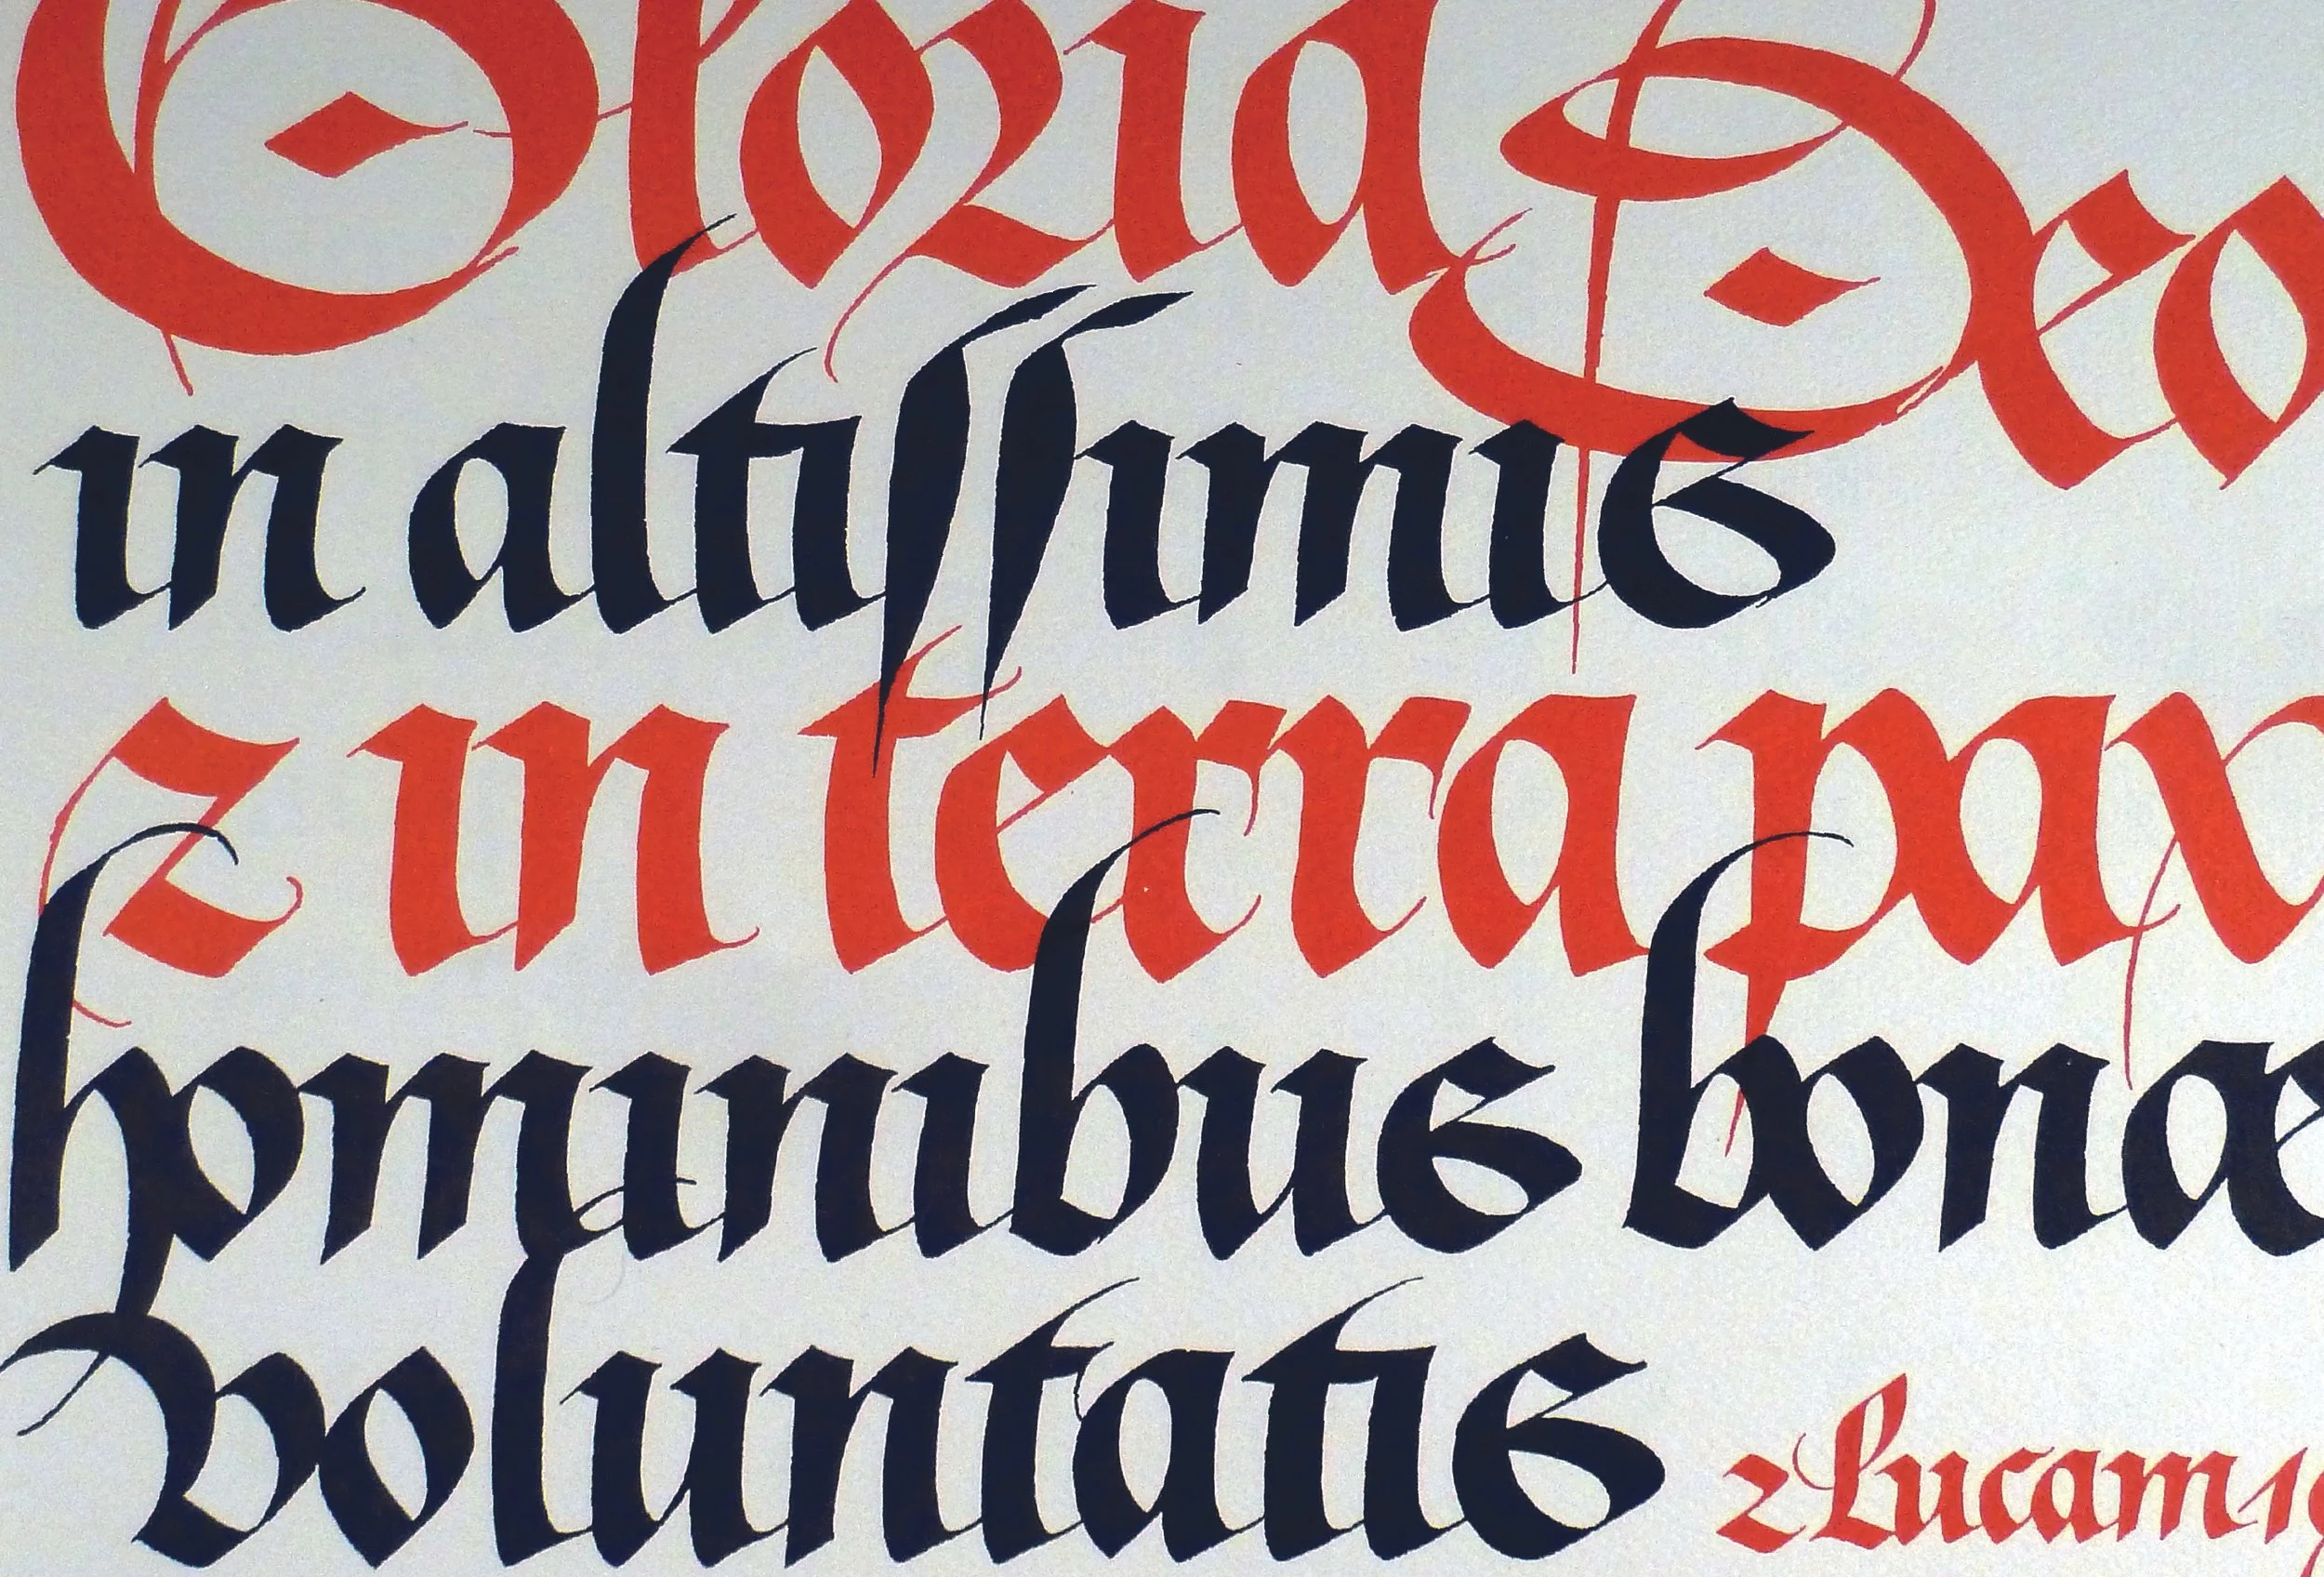 Gloria Deo
in altissimis
& in terra pax
hominibus bonæ
voluntatis
Lucam